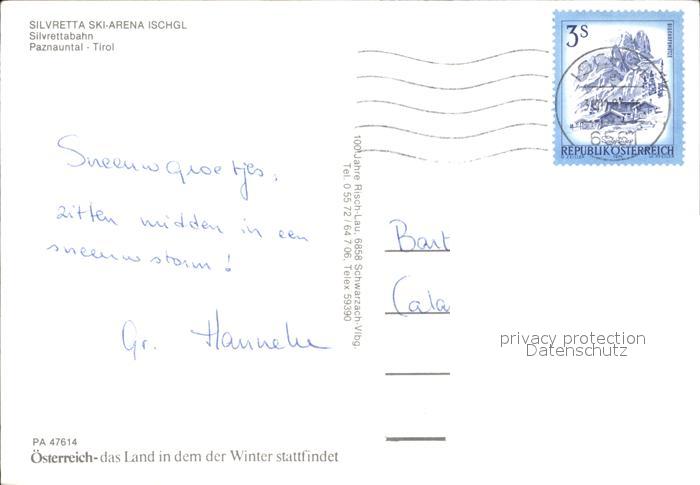 SILVRETTA SKI-ARENA ISCHGL
Silvrettabahn
Paznauntal - Tirol
3 S
REPUBLIK ÖSTERREICH
ISCHGL
6561
Sneeuwgroetjes,
zitten midden in een
sneeuwstorm!
Gr. Hanneke
100 Jahre Risch-Lau, 6858 Schwarzach-Vlbg.
Tel. 0 55 72 / 64 7 06, Telex 59390
Bart
Cala
privacy protection
Datenschutz
PA 47614
Österreich-das Land in dem der Winter stattfindet